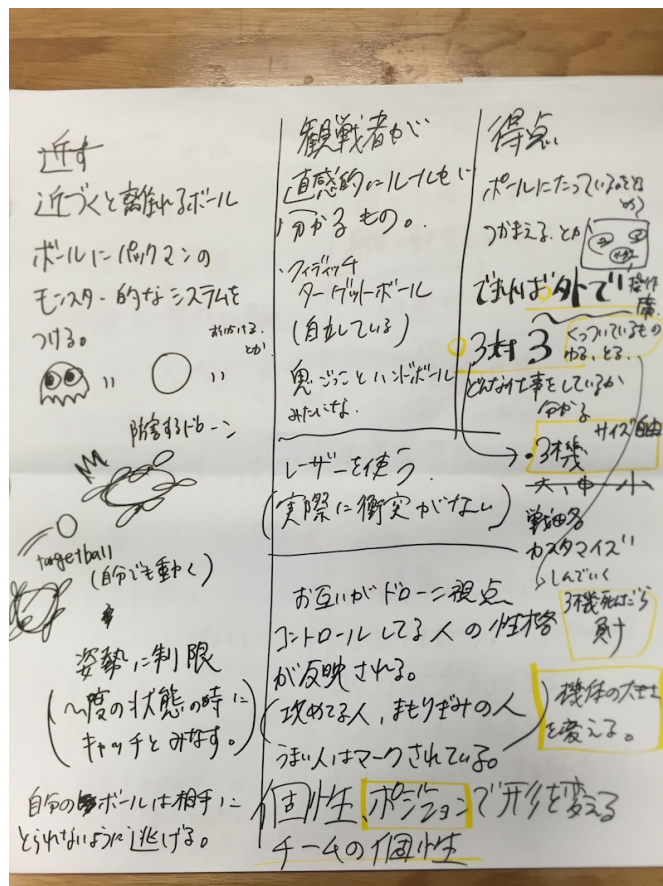 近す
近づくと離れるボール
ボールにパックマンの
モンスター的なシステムを
つける。
おいかける.
とか
防害するドローン
targetball
(自分でも動く)
姿勢に制限
(〜度の状態の時に
キャッチとみなす。)
自分のボールは相手に
とられないように逃げる。
観戦者が
直感的にルールもに
分かるもの。
・クィディッチ
ターゲットボール
(自立している)
鬼ごっことハンドボール
みたいな.
レーザーを使う
(実際に衝突がない)
お互いがドローン視点
コントロールしてる人の性格
が反映される。
(攻めてる人,まもりぎみの人)
うまい人はマークされている。
個性、ポジションで形を変える
チームの個性
得点
ポールにたっているをと
から
つかまえる.とか
できれば外で
操作
広
3対3
くっついているもの
ゆる、とる..
どんな仕事をしているか
分かる
サイズ自由
・3機
大,中,小
戦略
カスタマイズ
しんでいく
3機死んだら
負け
機体の大きさ
を変える。